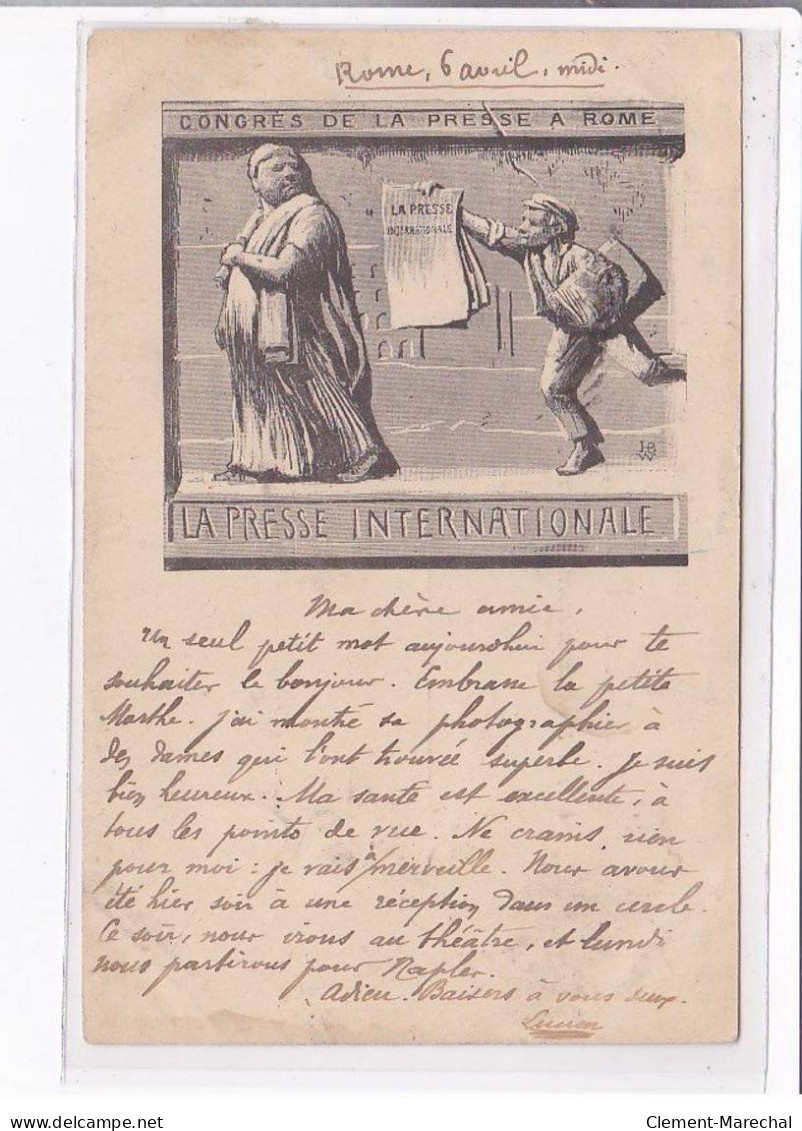 Rome, 6 avril, midi.
CONGRÈS DE LA PRESSE A ROME
LA PRESSE
INTERNATIONALE
JB
W
LA PRESSE INTERNATIONALE
Ma chère amie,
Un seul petit mot aujourd'hui pour te
souhaiter le bonjour. Embrasse la petite
Marthe. J'ai montré sa photographie à
des dames qui l'ont trouvée superbe. Je suis
bien heureux. Ma santé est excellente, à
tous les points de vue. Ne crains rien
pour moi : je vais à merveille. Nous avons
été hier soir à une réception dans un cercle.
Ce soir, nous irons au théâtre, et lundi
nous partirons pour Naples.
Adieu. Baisers à vous deux.
Lucien
Clement-Marechal